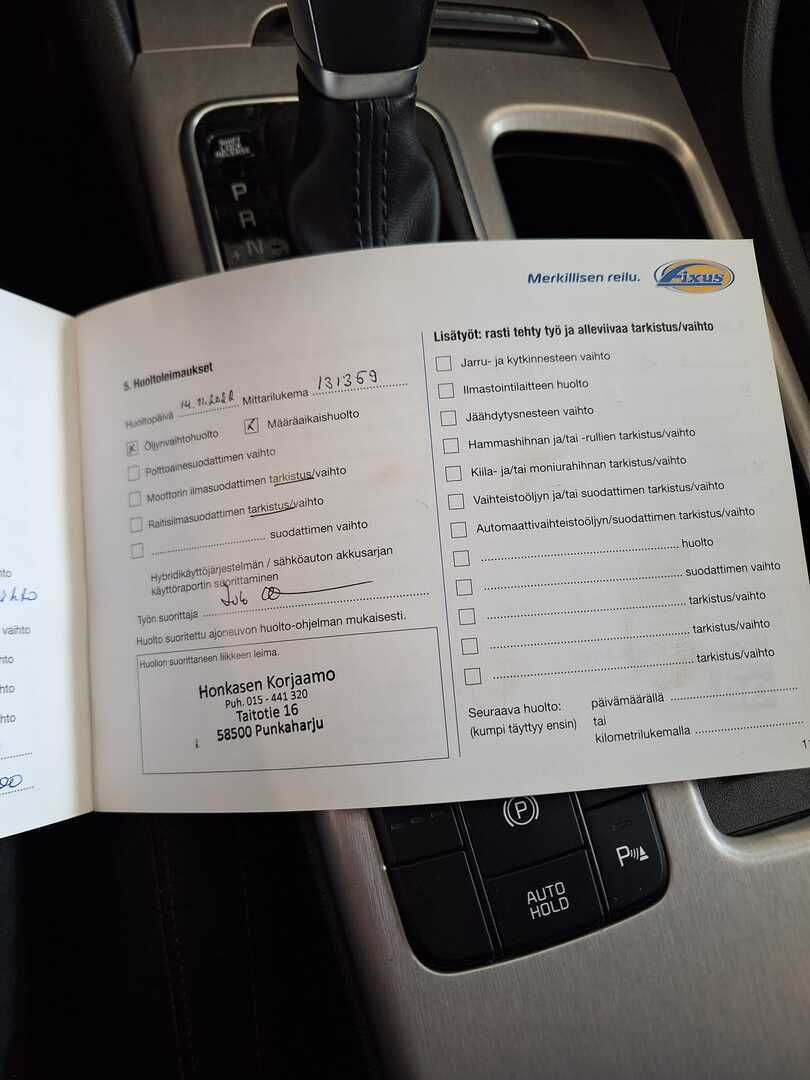 SHIFT
LOCK
RELEASE
P
R
N
+
Merkillisen reilu. Fixus
5. Huoltoleimaukset
Huoltopäivä 14.11.2022 Mittarilukema 131369
Öljynvaihtohuolto Määräaikaishuolto
Polttoainesuodattimen vaihto
Moottorin ilmasuodattimen tarkistus/vaihto
Raitisilmasuodattimen tarkistus/vaihto
suodattimen vaihto
Hybridikäyttöjärjestelmän / sähköauton akkusarjan
käyttöraportin suorittaminen
Työn suorittaja
Huolto suoritettu ajoneuvon huolto-ohjelman mukaisesti.
Huollon suorittaneen liikkeen leima.
Honkasen Korjaamo
Puh. 015 - 441 320
Taitotie 16
58500 Punkaharju
Lisätyöt: rasti tehty työ ja alleviivaa tarkistus/vaihto
Jarru- ja kytkinnesteen vaihto
Ilmastointilaitteen huolto
Jäähdytysnesteen vaihto
Hammashihnan ja/tai -rullien tarkistus/vaihto
Kiila- ja/tai moniurahihnan tarkistus/vaihto
Vaihteistoöljyn ja/tai suodattimen tarkistus/vaihto
Automaattivaihteistoöljyn/suodattimen tarkistus/vaihto
huolto
suodattimen vaihto
tarkistus/vaihto
tarkistus/vaihto
tarkistus/vaihto
Seuraava huolto: päivämäärällä
(kumpi täyttyy ensin) tai
kilometrilukemalla
vaihto
P
P
AUTO
HOLD